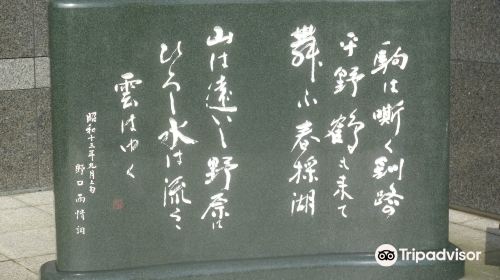 駒は嘶く釧路
平野鶴も来て
舞ふ春採湖
山は遠いし野原は
ひろし水は流るゝ
雲はゆく
昭和十三年九月上旬
野口雨情詞
Tripadvisor